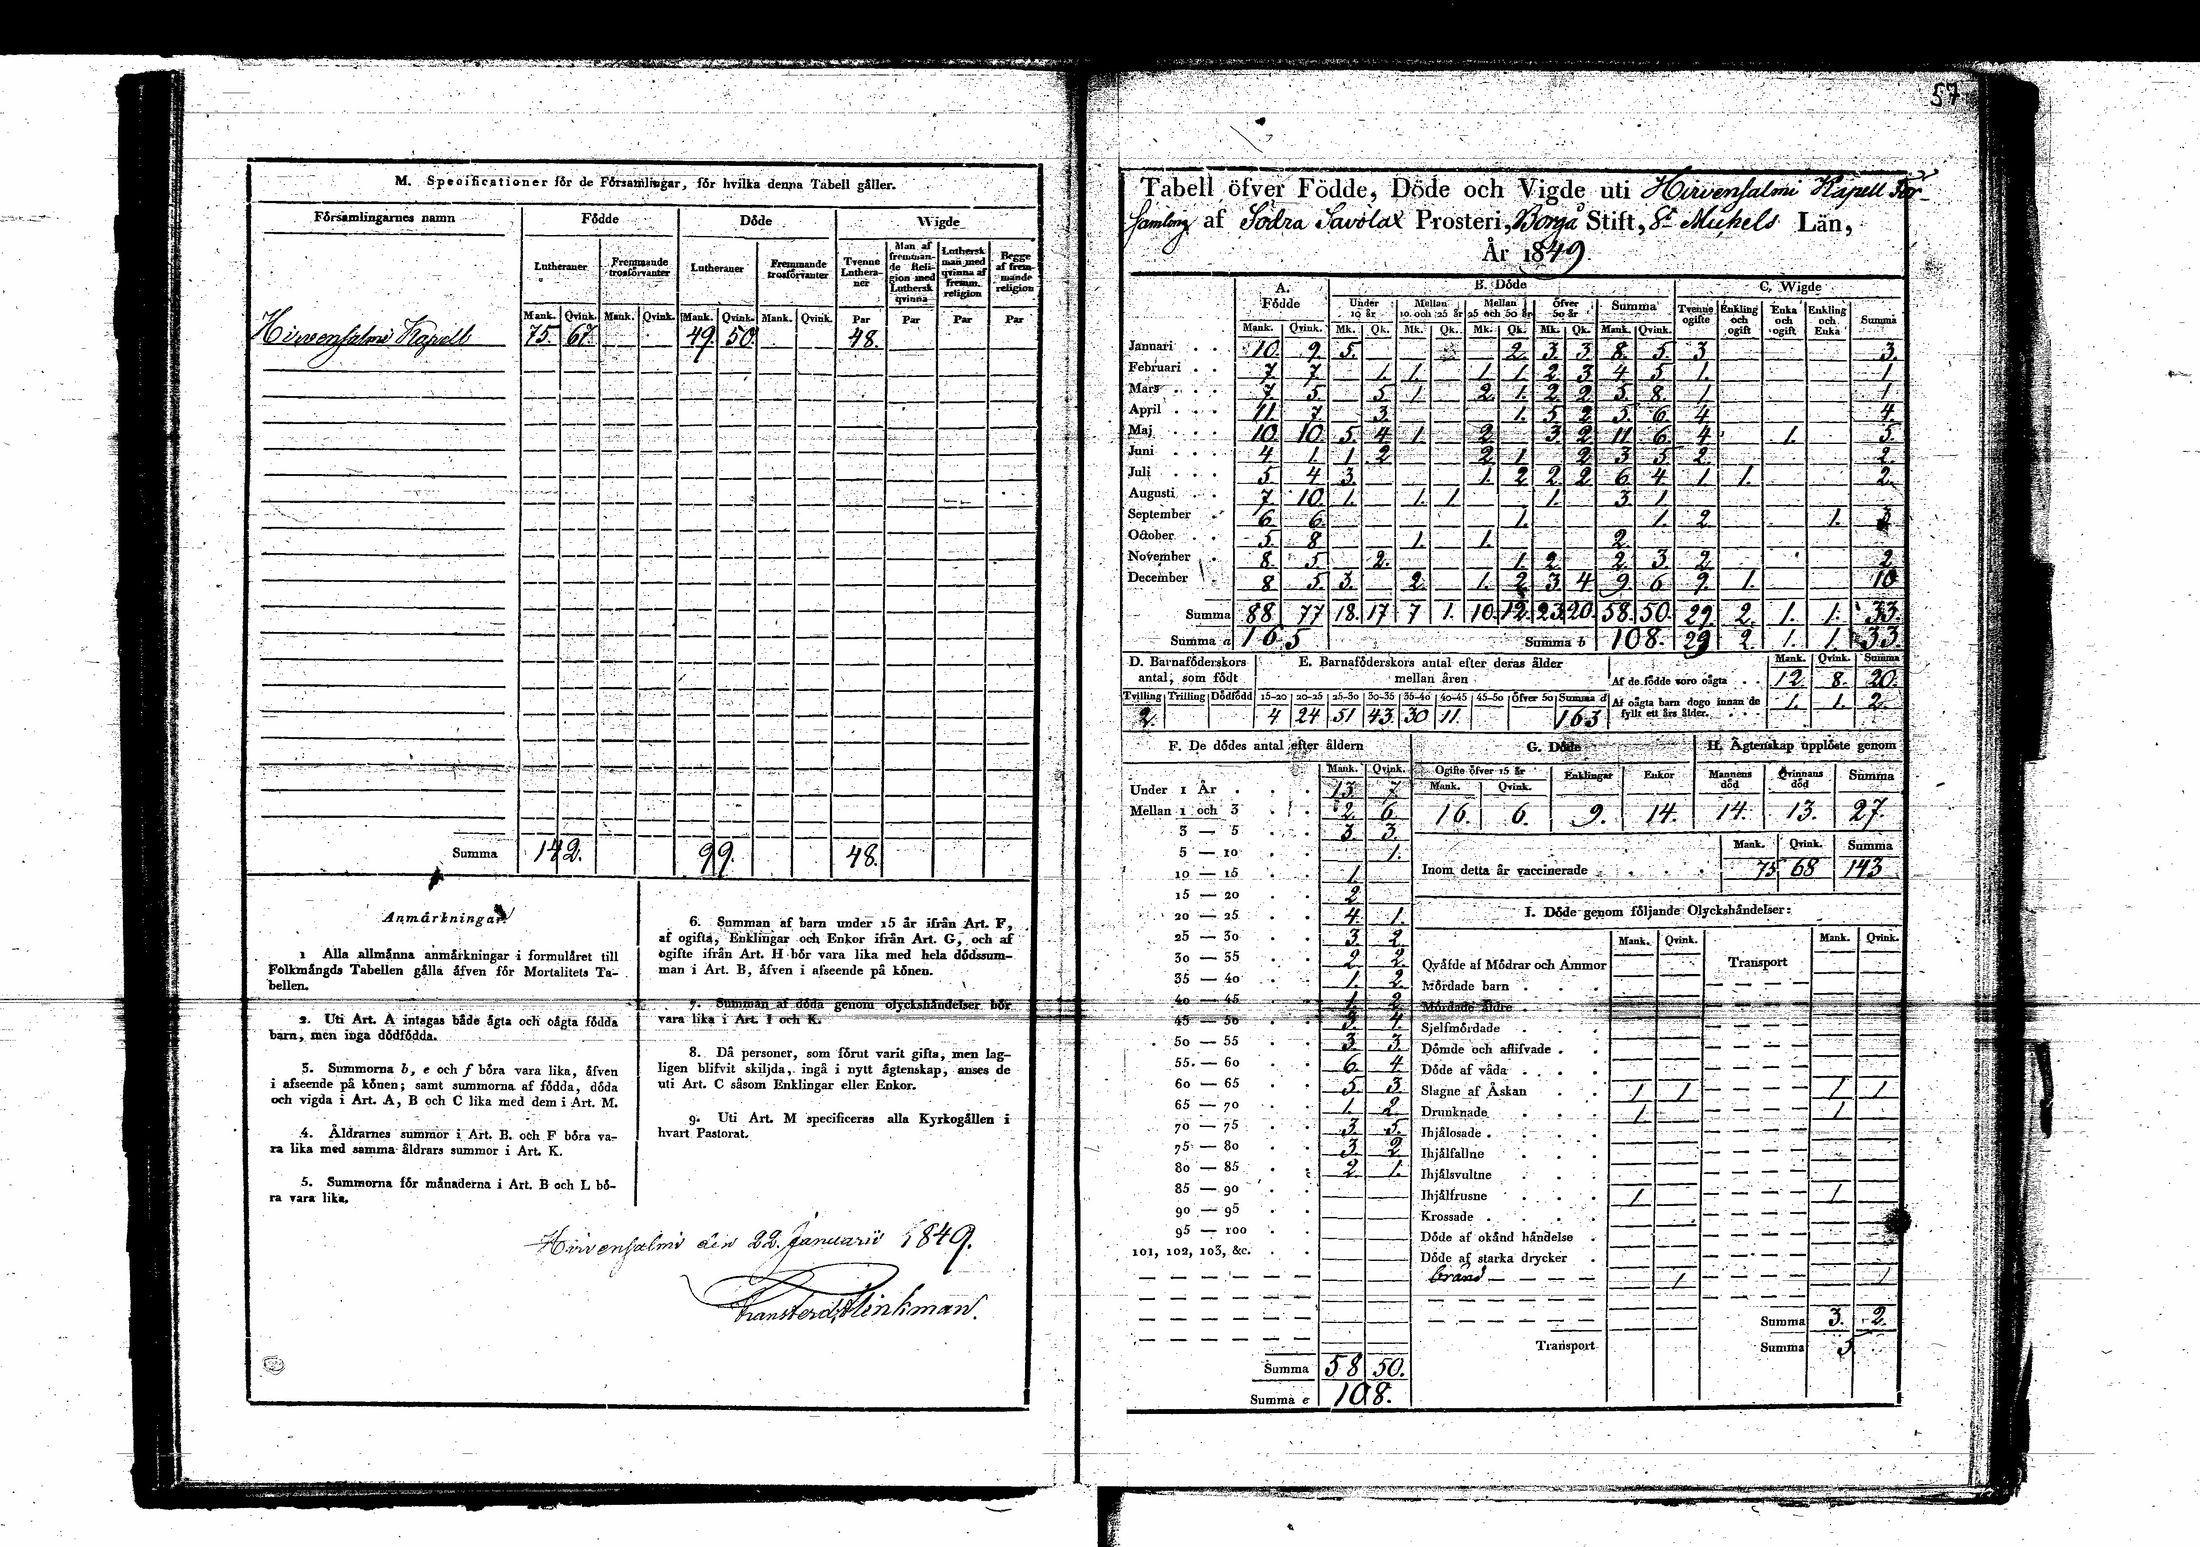 57
M. Specificationer för de Församlingar, för hvilka denna Tabell gäller.
Församlingarnes namn | Födde | Döde | Wigde
Lutheraner | Fremmande trosförvanter | Lutheraner | Fremmande trosförvanter | Tvenne Lutheraner | Man af fremmande Religion med Luthersk qvinna | Luthersk man med qvinna af fremm. religion | Begge af fremmande religion
Mank. Qvink. Mank. Qvink. Mank. Qvink. Mank. Qvink. Par Par Par Par
Hirvensalmi Kapell 75. 67. 49. 50. 48.
Summa 142. 99. 48.
Anmärkningar
1 Alla allmänna anmärkningar i formuläret till
Folkmängds Tabellen gälla äfven för Mortalitets Ta-
bellen.
2. Uti Art. A intagas både ägta och oägta födda
barn, men inga dödfödda.
3. Summorna b, e och f böra vara lika, äfven
i afseende på könen; samt summorna af födda, döda
och vigda i Art. A, B och C lika med dem i Art. M.
4. Åldrarnes summor i Art. B. och F böra va-
ra lika med samma åldrars summor i Art. K.
5. Summorna för månaderna i Art. B och L bö-
ra vara lika.
6. Summan af barn under 15 år ifrån Art. F,
af ogifta, Enklingar och Enkor ifrån Art. G, och af
ogifte ifrån Art. H bör vara lika med hela dödssum-
man i Art. B, äfven i afseende på könen.
7. Summan af döda genom olyckshändelser bör
vara lika i Art. I och K.
8. Då personer, som förut varit gifta, men lag-
ligen blifvit skiljda, ingå i nytt ägtenskap, anses de
uti Art. C såsom Enklingar eller Enkor.
9. Uti Art. M specificeras alla Kyrkogällen i
hvart Pastorat.
Hirvensalmi den 22. Januarii 1849.
Tabell öfver Födde, Döde och Vigde uti Hirvensalmi Kapell För-
samling af Södra Savolax Prosteri, Borgå Stift, St Michels Län,
År 1849.
A. Födde | B. Döde | C. Wigde
Under 10 år | Mellan 10 och 25 år | Mellan 25 och 50 år | Öfver 50 år | Summa | Tvenne ogifte | Enkling och ogift | Enka och ogift | Enkling och Enka | Summa
Mank. Qvink. Mk. Qk. Mk. Qk. Mk. Qk. Mk. Qk. Mank. Qvink.
Januari 10 9 5. 2. 3 3 8. 5. 3 3.
Februari 7 7 1. 1. 1 1. 2 3 4 5 1. 1
Mars 7 5 5 1 2 1. 2 2 5 8. 1 1
April 11 7 3 1. 5 2 5 6 4 4.
Maj 10 10 5. 4 1. 2 3 2 11 6. 4 1. 5.
Juni 4 1. 1 2 2 1 2 3 5 2 2.
Juli 5 4 3 1. 2 2 2 6 4 1 1. 2.
Augusti 7 10. 1. 1. 1. 1. 3 1.
September 6 6. 1. 1. 2 1. 3
October 5 8 1. 1. 2
November 8. 5 2. 1. 2 2. 3 2 2
December 8 5. 3. 2. 1. 2 3 4 9. 6 9. 1. 10
Summa 88 77 18. 17 7 1. 10. 12. 23. 20. 58. 50. 29. 2. 1. 1. 33.
Summa a 165 Summa b 108. 29 2. 1. 1. 33.
D. Barnaföderskors antal, som födt | E. Barnaföderskors antal efter deras ålder mellan åren
Mank. Qvink. Summa
Af de födde voro oägta 12 8. 20.
Tvilling Trilling Dödfödd 15-20 20-25 25-30 30-35 35-40 40-45 45-50 Öfver 50 Summa d
2. 4 24 51 43. 30 11. 163
Af oägta barn dogo innan de fyllt ett års ålder. 1. 1. 2.
F. De dödes antal efter åldern
Mank. Qvink.
Under 1 År 13 7
Mellan 1 och 3 2 6
3 — 5 3 3.
5 — 10 1.
10 — 15 1.
15 — 20 2
20 — 25 4 1.
25 — 30 3 2
30 — 35 2 2.
35 — 40 1. 2
40 — 45 1. 2
45 — 50 3. 4.
50 — 55 3 3.
55 — 60 6. 4
60 — 65 5 3
65 — 70 1. 2
70 — 75 3 5.
75 — 80 3 2
80 — 85 2 1.
85 — 90
90 — 95
95 — 100
101, 102, 103, &c.
Summa 58 50.
Summa e 108.
G. Döde | H. Ägtenskap upplöste genom
Ogifte öfver 15 år | Enklingar | Enkor | Mannens död | Qvinnans död | Summa
Mank. Qvink.
16. 6. 9. 14. 14. 13. 27.
Mank. Qvink. Summa
Inom detta år vaccinerade 75 68 143
I. Döde genom följande Olyckshändelser:
Mank. Qvink. Mank. Qvink.
Qväfde af Mödrar och Ammor Transport
Mördade barn
Mördade äldre
Sjelfmördade
Dömde och aflifvade
Döde af våda
Slagne af Åskan 1 1 1 1
Drunknade 1. 1
Ihjälosade
Ihjälfallne
Ihjälsvultne
Ihjälfrusne 1. 1
Krossade
Döde af okänd händelse
Döde af starka drycker
bränd 1 1
Summa 3. 2.
Transport Summa